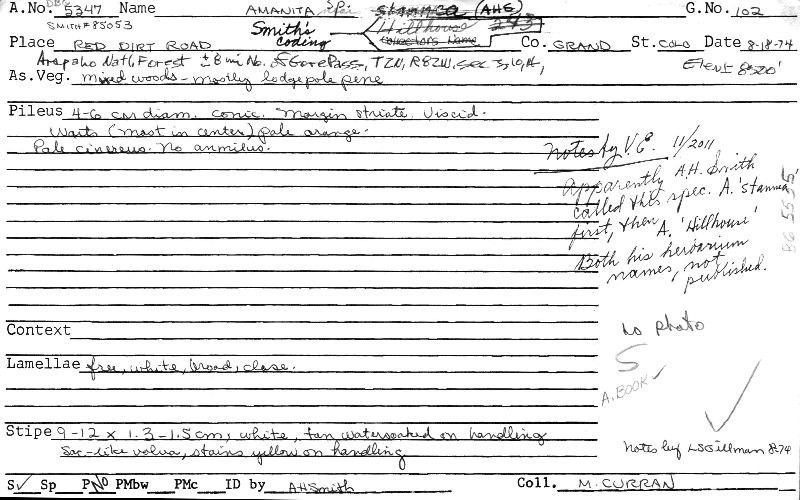 A.No. DBG 5347 Name AMANITA spr stannea (AHS) G.No. 102
SMITH#85053 Smith's coding Hillhouse 243
Collectors Name
Place RED DIRT ROAD Co. GRAND St. COLO Date 8-18-74
Arapaho Natl, Forest ±8 mi No. of Gore Pass, T2N, R82W, sec 3, 10, 14, Elev± 8520'
As.Veg. mixed woods - mostly lodgepole pine
Pileus 4-6 cm diam. conic. Margin striate. Viscid.
Warts (most in center) pale orange.
Pale cinereus. No annulus.
Notes by VE. 11/2011
Apparently A.H. Smith
called this spec. A. 'stannea'
first, then A. 'Hillhouse'
Both his herbarium
names, not
published.
BG 5535
Context
no photo
Lamellae free, white, broad, close.
S
A. BOOK ✓
Stipe 9-12 x 1.3-1.5cm, white, tan watersoaked on handling
Sac-like volva, stains yellow on handling
Notes by LSGillman 8-74
S✓ Sp P NO PMbw PMc ID by AHSmith Coll. M. CURRAN